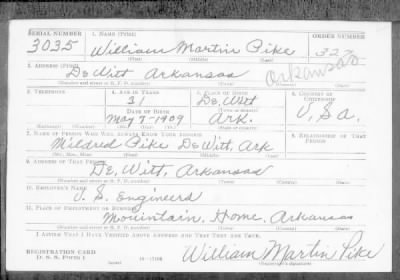 SERIAL NUMBER 1. NAME (Print) ORDER NUMBER
3035 William Martin Pike 327
(First) (Middle) (Last)
2. ADDRESS (Print)
De Witt Arkansas Arkansas
(Number and street or R. F. D. number) (Town) (County) (State)
3. TELEPHONE 4. AGE IN YEARS 5. PLACE OF BIRTH 6. COUNTRY OF CITIZENSHIP
31 De, Witt
DATE OF BIRTH (Town or county) U, S a.
May 7-1909 Ark.
(Mo.) (Day) (Yr.) (State or country)
7. NAME OF PERSON WHO WILL ALWAYS KNOW YOUR ADDRESS 8. RELATIONSHIP OF THAT PERSON
Mildred Pike De Witt, Ark
(Mr., Mrs., Miss) (First) (Middle) (Last)
9. ADDRESS OF THAT PERSON
De, Witt, Arkansas
(Number and street or R. F. D. number) (Town) (County) (State)
10. EMPLOYER'S NAME
U. S. Engineers
11. PLACE OF EMPLOYMENT OR BUSINESS
Mountain, Home, Arkansas
(Number and street or R. F. D. number) (Town) (County) (State)
I AFFIRM THAT I HAVE VERIFIED ABOVE ANSWERS AND THAT THEY ARE TRUE.
REGISTRATION CARD William Martin Pike
D. S. S. Form 1 (Registrant's signature)